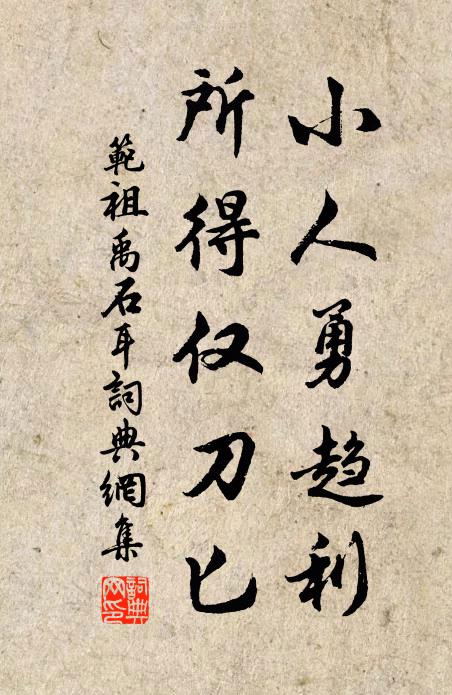 小人勇趨利
所得仅刀匕
範祖禹石耳詞典網集
詞典网印